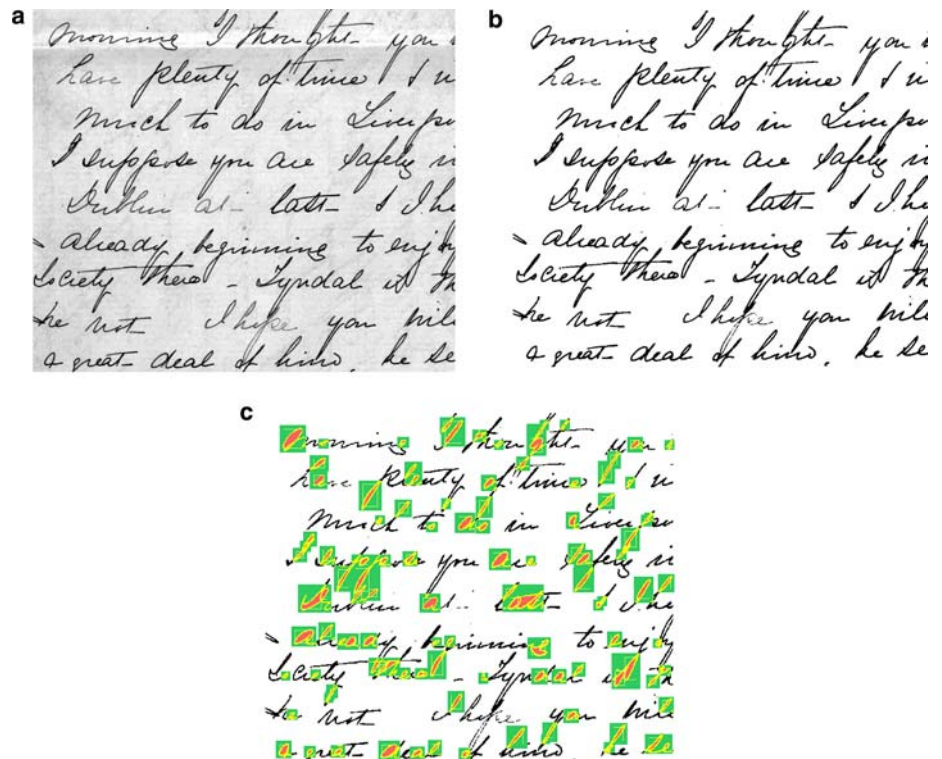 a
morning I thought- you
have plenty of time I
much to do in Liverpo
I suppose you are safely in
Dublin at- last- & I he
already beginning to enjoy
Society there - Tyndal is th
he not I hope you will
a great- deal of him, he se
b
morning I thought- you
have plenty of time I
much to do in Liverpo
I suppose you are safely in
Dublin at- last- & I he
already beginning to enjoy
Society there - Tyndal is th
he not I hope you will
a great- deal of him, he se
c
morning I thought- you
have plenty of time I
much to do in Liverpo
I suppose you are safely in
Dublin at- last- & I he
already beginning to enjoy
Society there - Tyndal is th
he not I hope you will
a great- deal of him he se